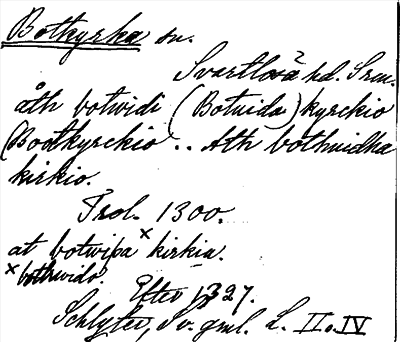 Botkyrka sn.
Svartlösa hd. Srm.
åth botwidi (Botuida) kyrckio
(Bootkyrckio .. Ath bothuidha
kirkio.
Trol. 1300.
at botwiþa x kirkia.
x bothwido.
Efter 1327.
Schlyter, Sv. gml. L. II o. IV